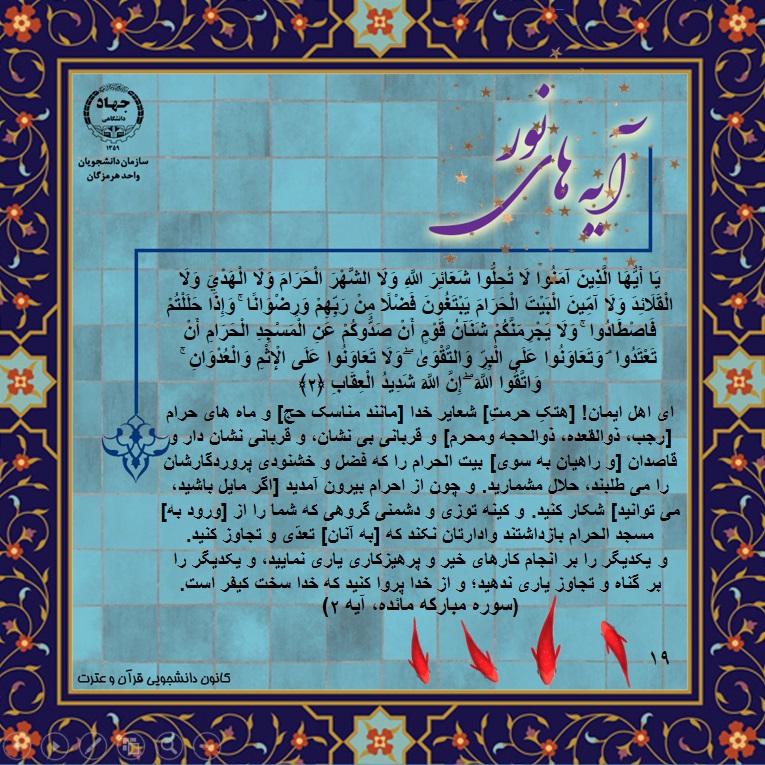 جهاد
دانشگاهی
۱۳۵۹
سازمان دانشجویان
واحد هرمزگان
آیه های نور
يَا أَيُّهَا الَّذِينَ آمَنُوا لَا تُحِلُّوا شَعَائِرَ اللَّهِ وَلَا الشَّهْرَ الْحَرَامَ وَلَا الْهَدْيَ وَلَا
الْقَلَائِدَ وَلَا آمِّينَ الْبَيْتَ الْحَرَامَ يَبْتَغُونَ فَضْلًا مِنْ رَبِّهِمْ وَرِضْوَانًا ۚ وَإِذَا حَلَلْتُمْ
فَاصْطَادُوا ۚ وَلَا يَجْرِمَنَّكُمْ شَنَآنُ قَوْمٍ أَنْ صَدُّوكُمْ عَنِ الْمَسْجِدِ الْحَرَامِ أَنْ
تَعْتَدُوا ۘ وَتَعَاوَنُوا عَلَى الْبِرِّ وَالتَّقْوَىٰ ۖ وَلَا تَعَاوَنُوا عَلَى الْإِثْمِ وَالْعُدْوَانِ ۚ
وَاتَّقُوا اللَّهَ ۖ إِنَّ اللَّهَ شَدِيدُ الْعِقَابِ ﴿۲﴾
ای اهل ایمان! [هتکِ حرمتِ] شعایر خدا [مانند مناسک حج] و ماه های حرام
[رجب، ذوالقعده، ذوالحجه ومحرم] و قربانی بی نشان، و قربانی نشان دار و
قاصدان [و راهیان به سوی] بیت الحرام را که فضل و خشنودی پروردگارشان
را می طلبند، حلال مشمارید. و چون از احرام بیرون آمدید [اگر مایل باشید،
می توانید] شکار کنید. و کینه توزی و دشمنی گروهی که شما را از [ورود به]
مسجد الحرام بازداشتند وادارتان نکند که [به آنان] تعدّی و تجاوز کنید.
و یکدیگر را بر انجام کارهای خیر و پرهیزکاری یاری نمایید، و یکدیگر را
بر گناه و تجاوز یاری ندهید؛ و از خدا پروا کنید که خدا سخت کیفر است.
(سوره مبارکه مائده، آیه ۲)
۱۹
کانون دانشجویی قرآن و عترت